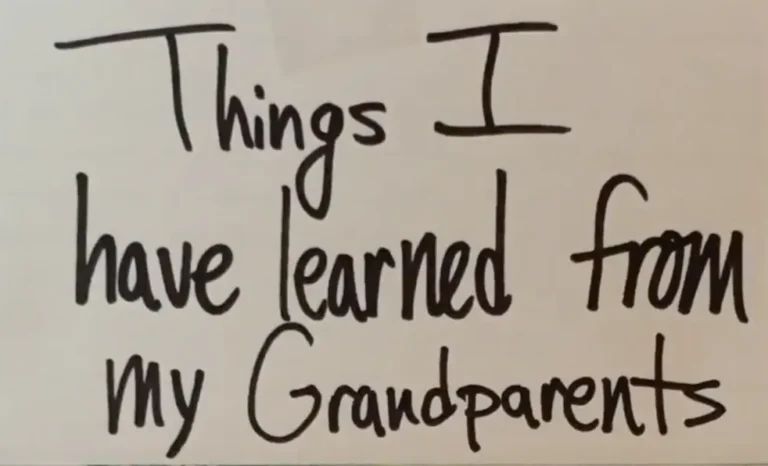 Things I
have learned from
my Grandparents